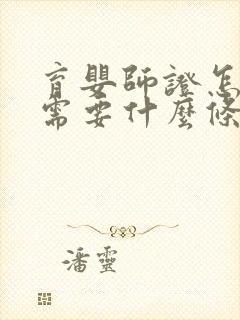 育嬰師證怎
需要什麼條
潘靈